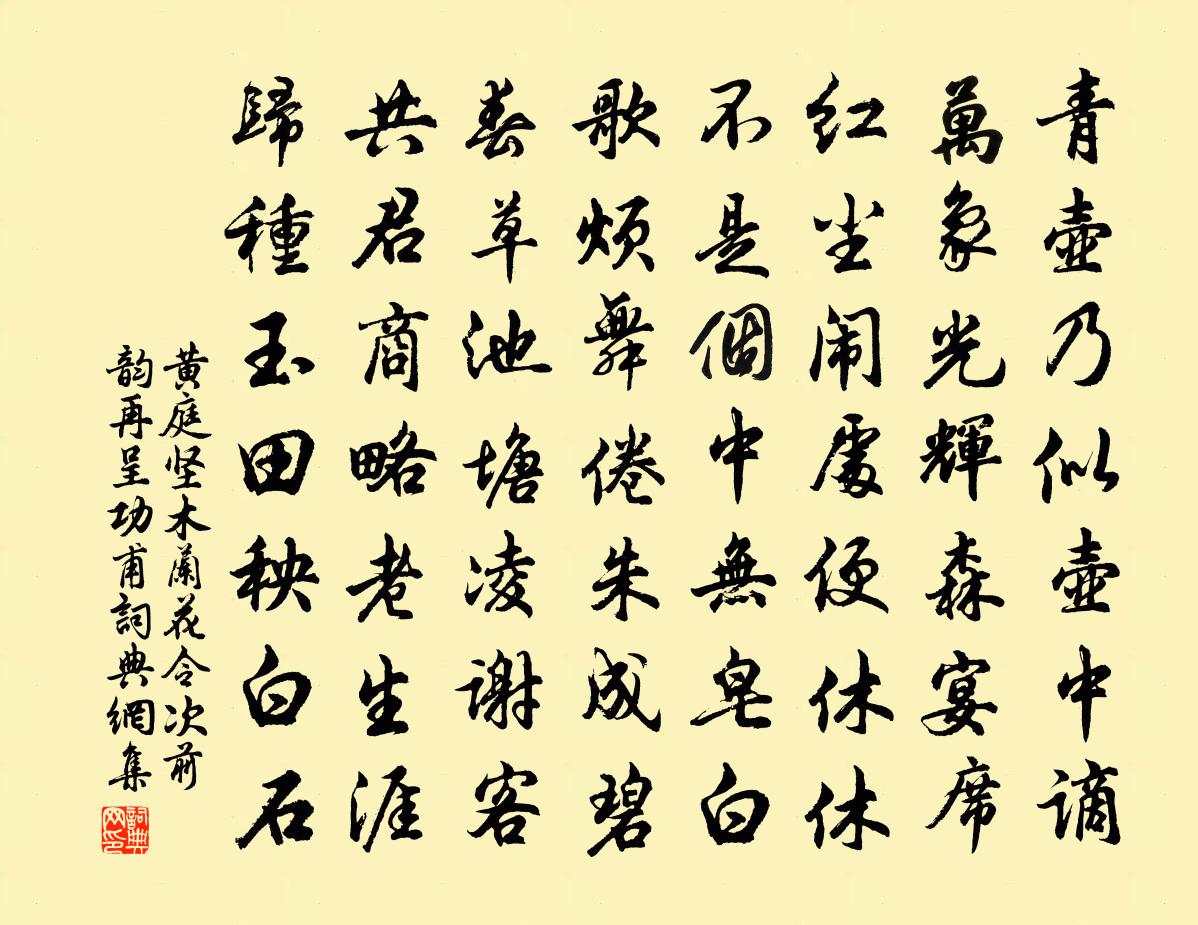 青壺乃似壺中謫
萬象光輝森宴席
红尘闹處便休休
不是個中無皂白
歌烦舞倦朱成碧
春草池塘凌谢客
共君商略老生涯
歸種玉田秧白石
黄庭坚木蘭花令次前
韵再呈功甫詞典網集
詞典
网印